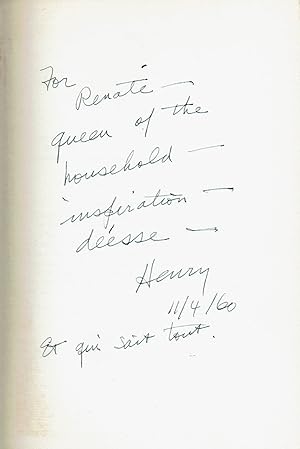 For
Renate —
queen of the
household —
inspiration —
déesse —
Henry
11/4/60
Et qui sait tout.